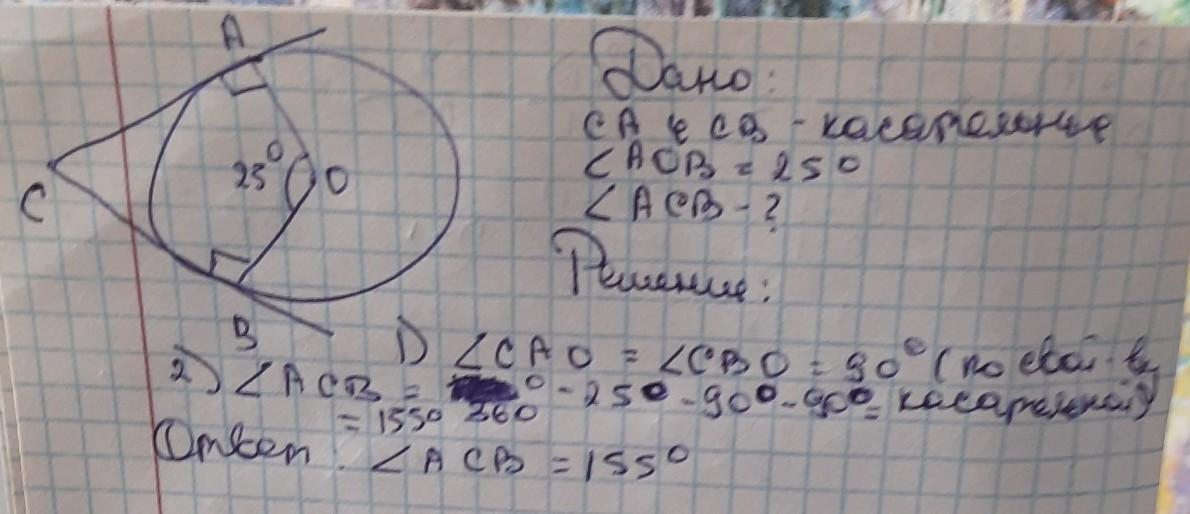 A
25°
O
C
B
Дано:
CA и CB - касательные
∠AOB = 25°
∠ACB - ?
Решение:
1) ∠CAO = ∠CBO = 90° (по свой-ву
касательной)
2) ∠ACB = 360° - 25° - 90° - 90° =
= 155°
Ответ: ∠ACB = 155°